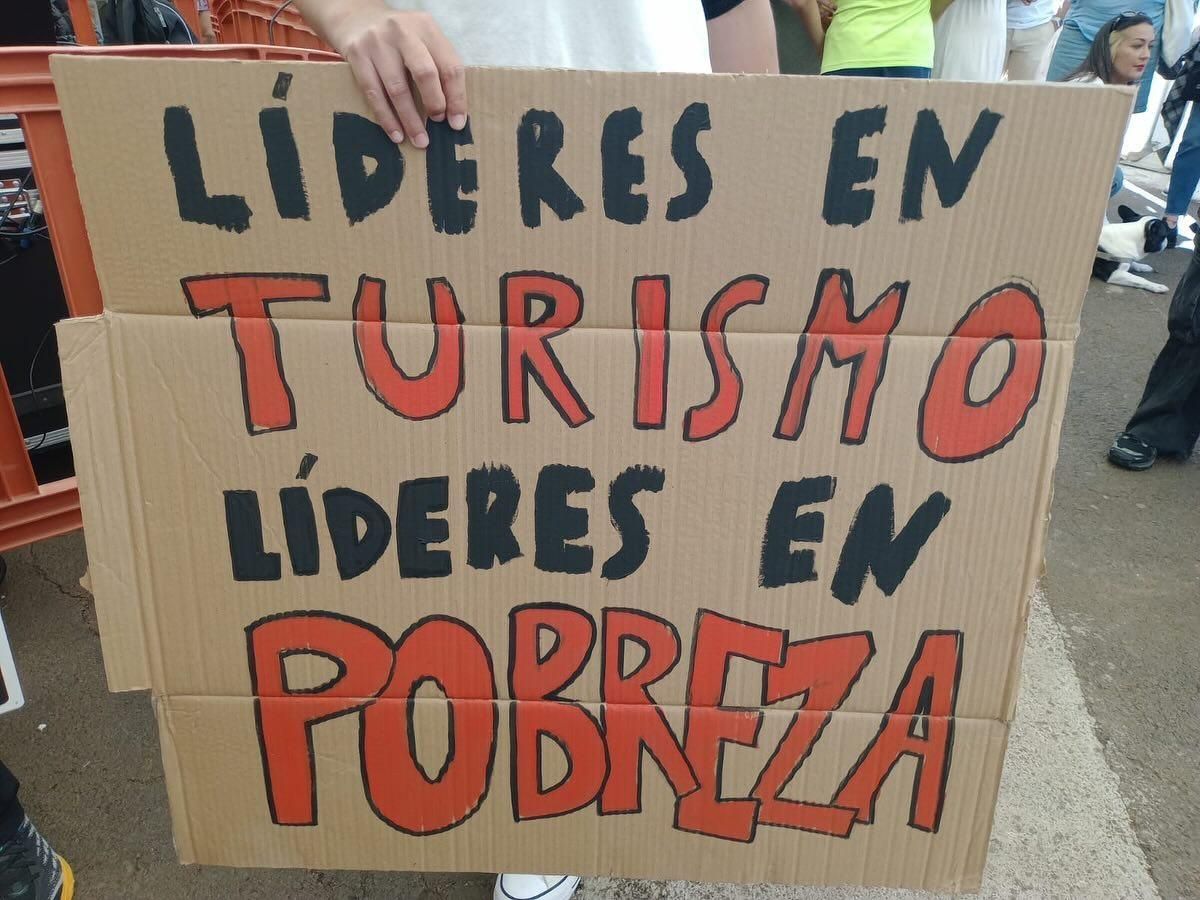 LÍDERES EN
TURISMO
LÍDERES EN
POBREZA